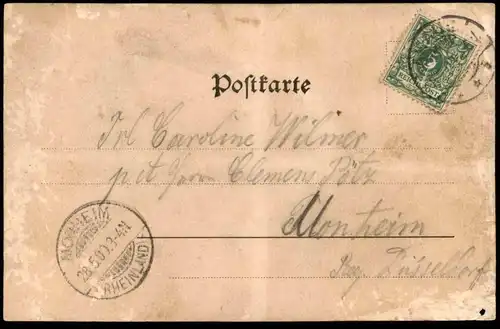 Postkarte
Frl Caroline Wilmer
p. A. Herrn Clemens Pötz
Monheim
Bez. Düsseldorf
MONHEIM
28.5.00. 3-4N
(RHEINLAND)